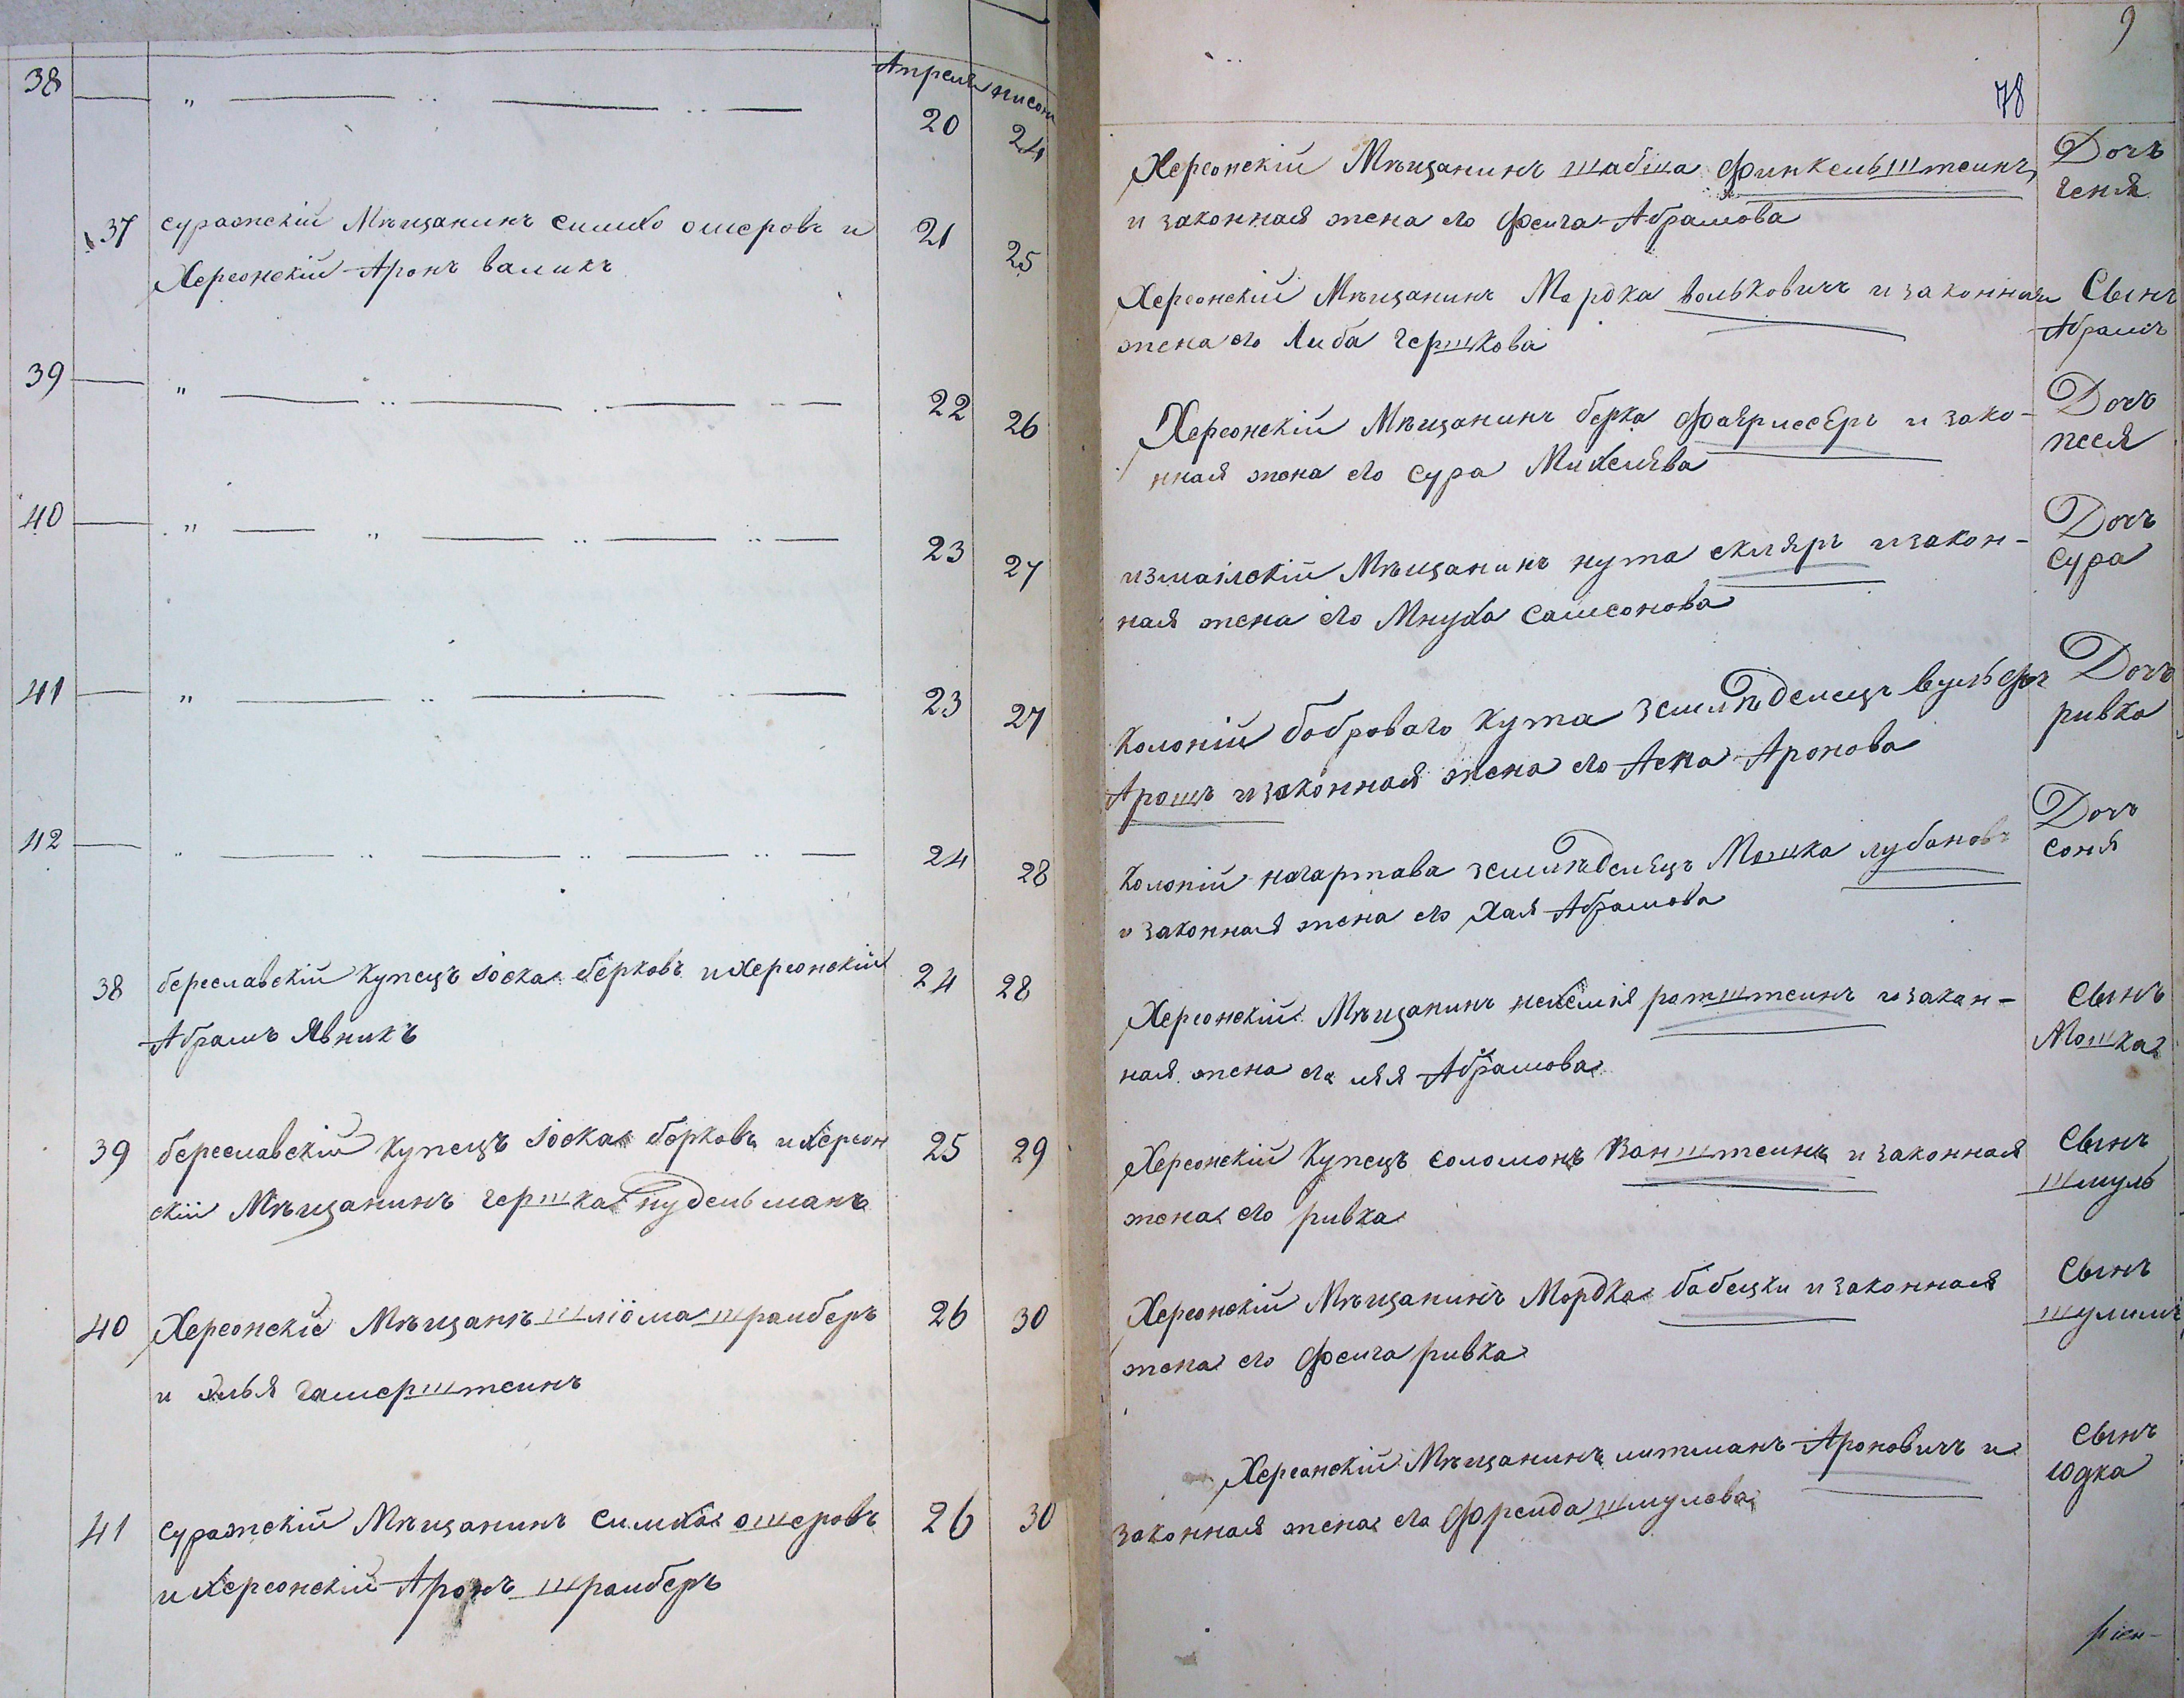 9
78
Апреля нисон
38 " 20 24
Херсонскій Мѣщанинъ шабша Финкельштеинъ Дочъ
и законная жена его Феига Абрамова геня
37 суражскій Мѣщанинъ симхо ошеровъ и 21 25
Херсонскій Аронъ валикъ
Херсонскій Мѣщанинъ Мордка вольковичъ и законная Сынъ
жена его Либа гершкова Абрамъ
39 " 22 26
Херсонскій Мѣщанинъ берка и зако- Дочъ
нная жена его сура песя
40 " " 23 27
измаілскій Мѣщанинъ нута скляръ и закон- Дочъ
ная жена его Мнуха самсонова сура
41 " 23 27
Колоній боброваго Кута землѣделецъ вульфъ Дочъ
Арошъ и законная жена его Аронова ривка
42 24 28
Колоній нагартава землѣделецъ Мошка лубановъ Дочъ
и законная жена его Хая Абрамова соня
38 береславскій Купецъ іоска берковъ и Херсонскій 24 28
Абрамъ Явникъ
Херсонскій Мѣщанинъ нехемія ратштеинъ и закон- Сынъ
ная жена его лея Абрамова Мошка
39 береславскій Купецъ іоска берковъ и Херсон 25 29
скій Мѣщанинъ гершка нудельманъ
Херсонскій Купецъ соломонъ Ванштеинъ и законная Сынъ
жена его ривка шмуль
40 Херсонскіе Мѣщанѣ шліома шраиберъ 26 30
и элья гамерштеинъ
Херсонскій Мѣщанинъ Мордка бабецки и законная Сынъ
жена его Феига ривка шулимъ
41 суражскій Мѣщанинъ симха ошеровъ 26 30
и Херсонскій Аронъ шраиберъ
Херсонскій Мѣщанинъ литманъ Ароновичъ и Сынъ
законная жена его Фреида шмулева юдка